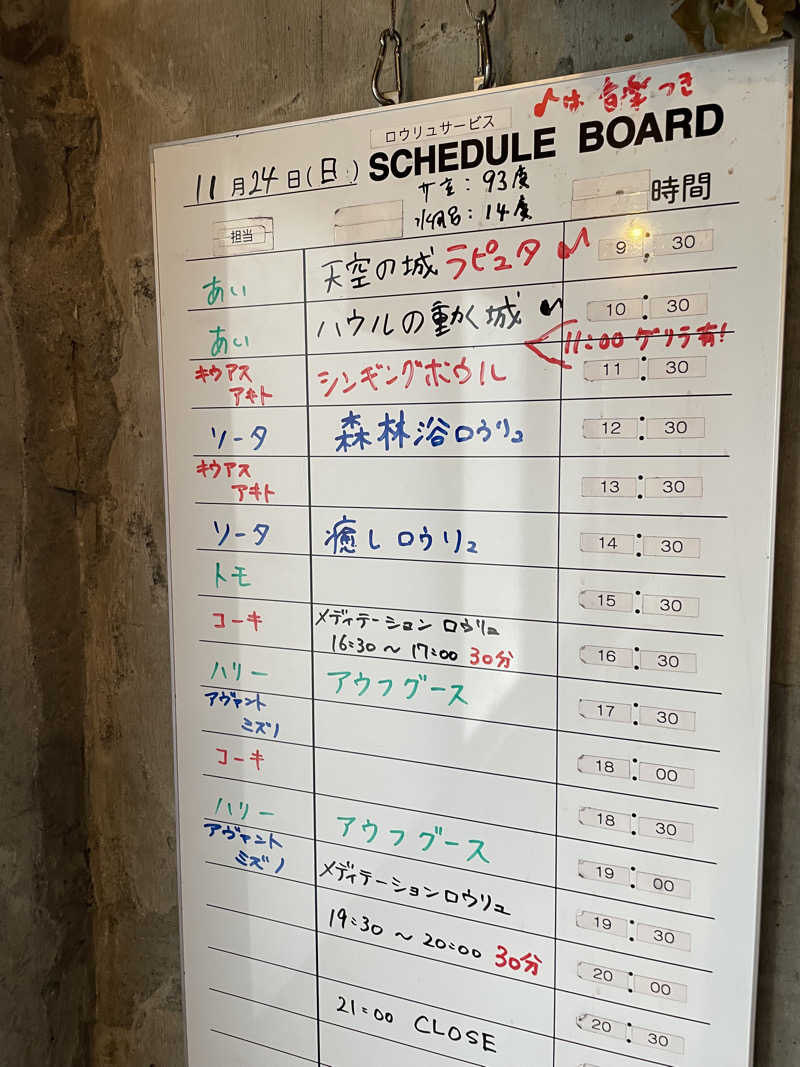 ♪は 音楽つき
ロウリュサービス
SCHEDULE BOARD
11月24日(日)
サ室:93度
水風呂:14度
時間
担当
あい 天空の城ラピュタ♪ 9:30
あい ハウルの動く城♪ 10:30
11:00 ゲリラ有!
キウアス アキト シンギングボウル 11:30
ソータ 森林浴ロウリュ 12:30
キウアス アキト 13:30
ソータ 癒しロウリュ 14:30
トモ 15:30
コーキ メディテーションロウリュ 16:30
16:30 ~ 17:00 30分
ハリー アウフグース 17:30
アヴァント ミズノ 18:00
コーキ 18:30
ハリー アウフグース 19:00
アヴァント ミズノ メディテーションロウリュ 19:30
19:30 ~ 20:00 30分 20:00
20:30
21:00 CLOSE